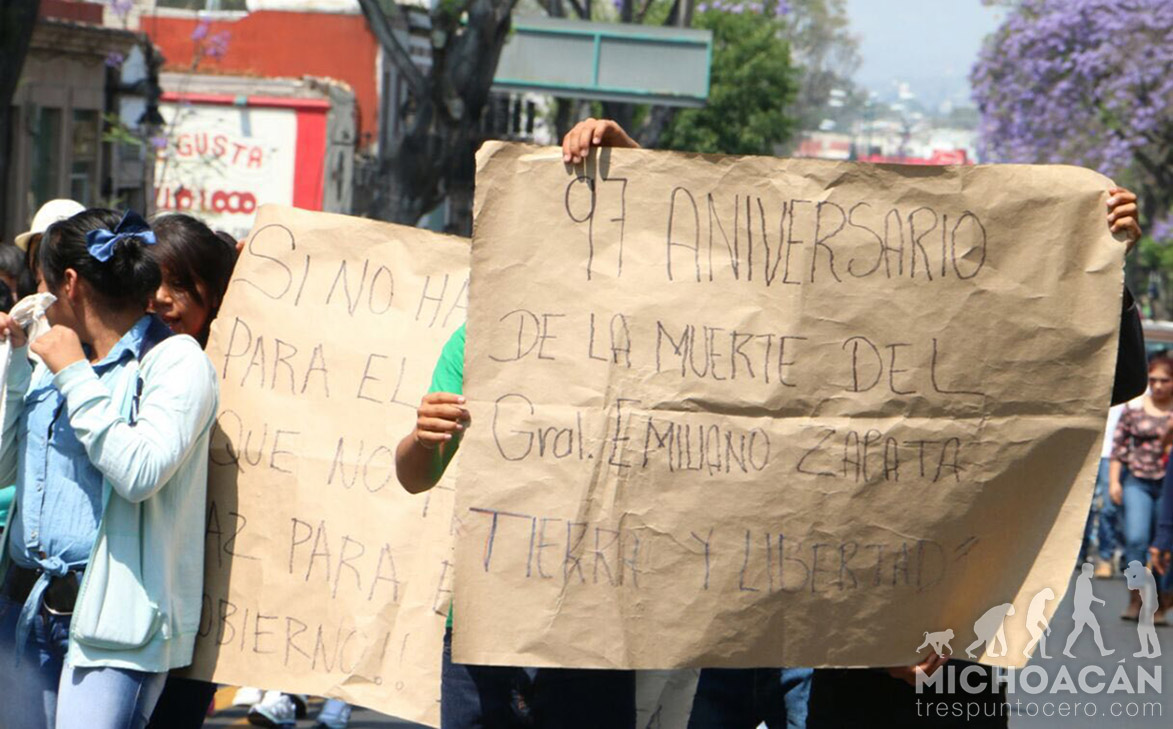 GUSTA
LOCO
97 ANIVERSARIO
DE LA MUERTE DEL
Gral. EMILIANO ZAPATA
TIERRA Y LIBERTAD"
SI NO HA
PARA EL
QUE NO
AZ PARA E
OBIERNO!!
MICHOACÁN
trespuntocero.com